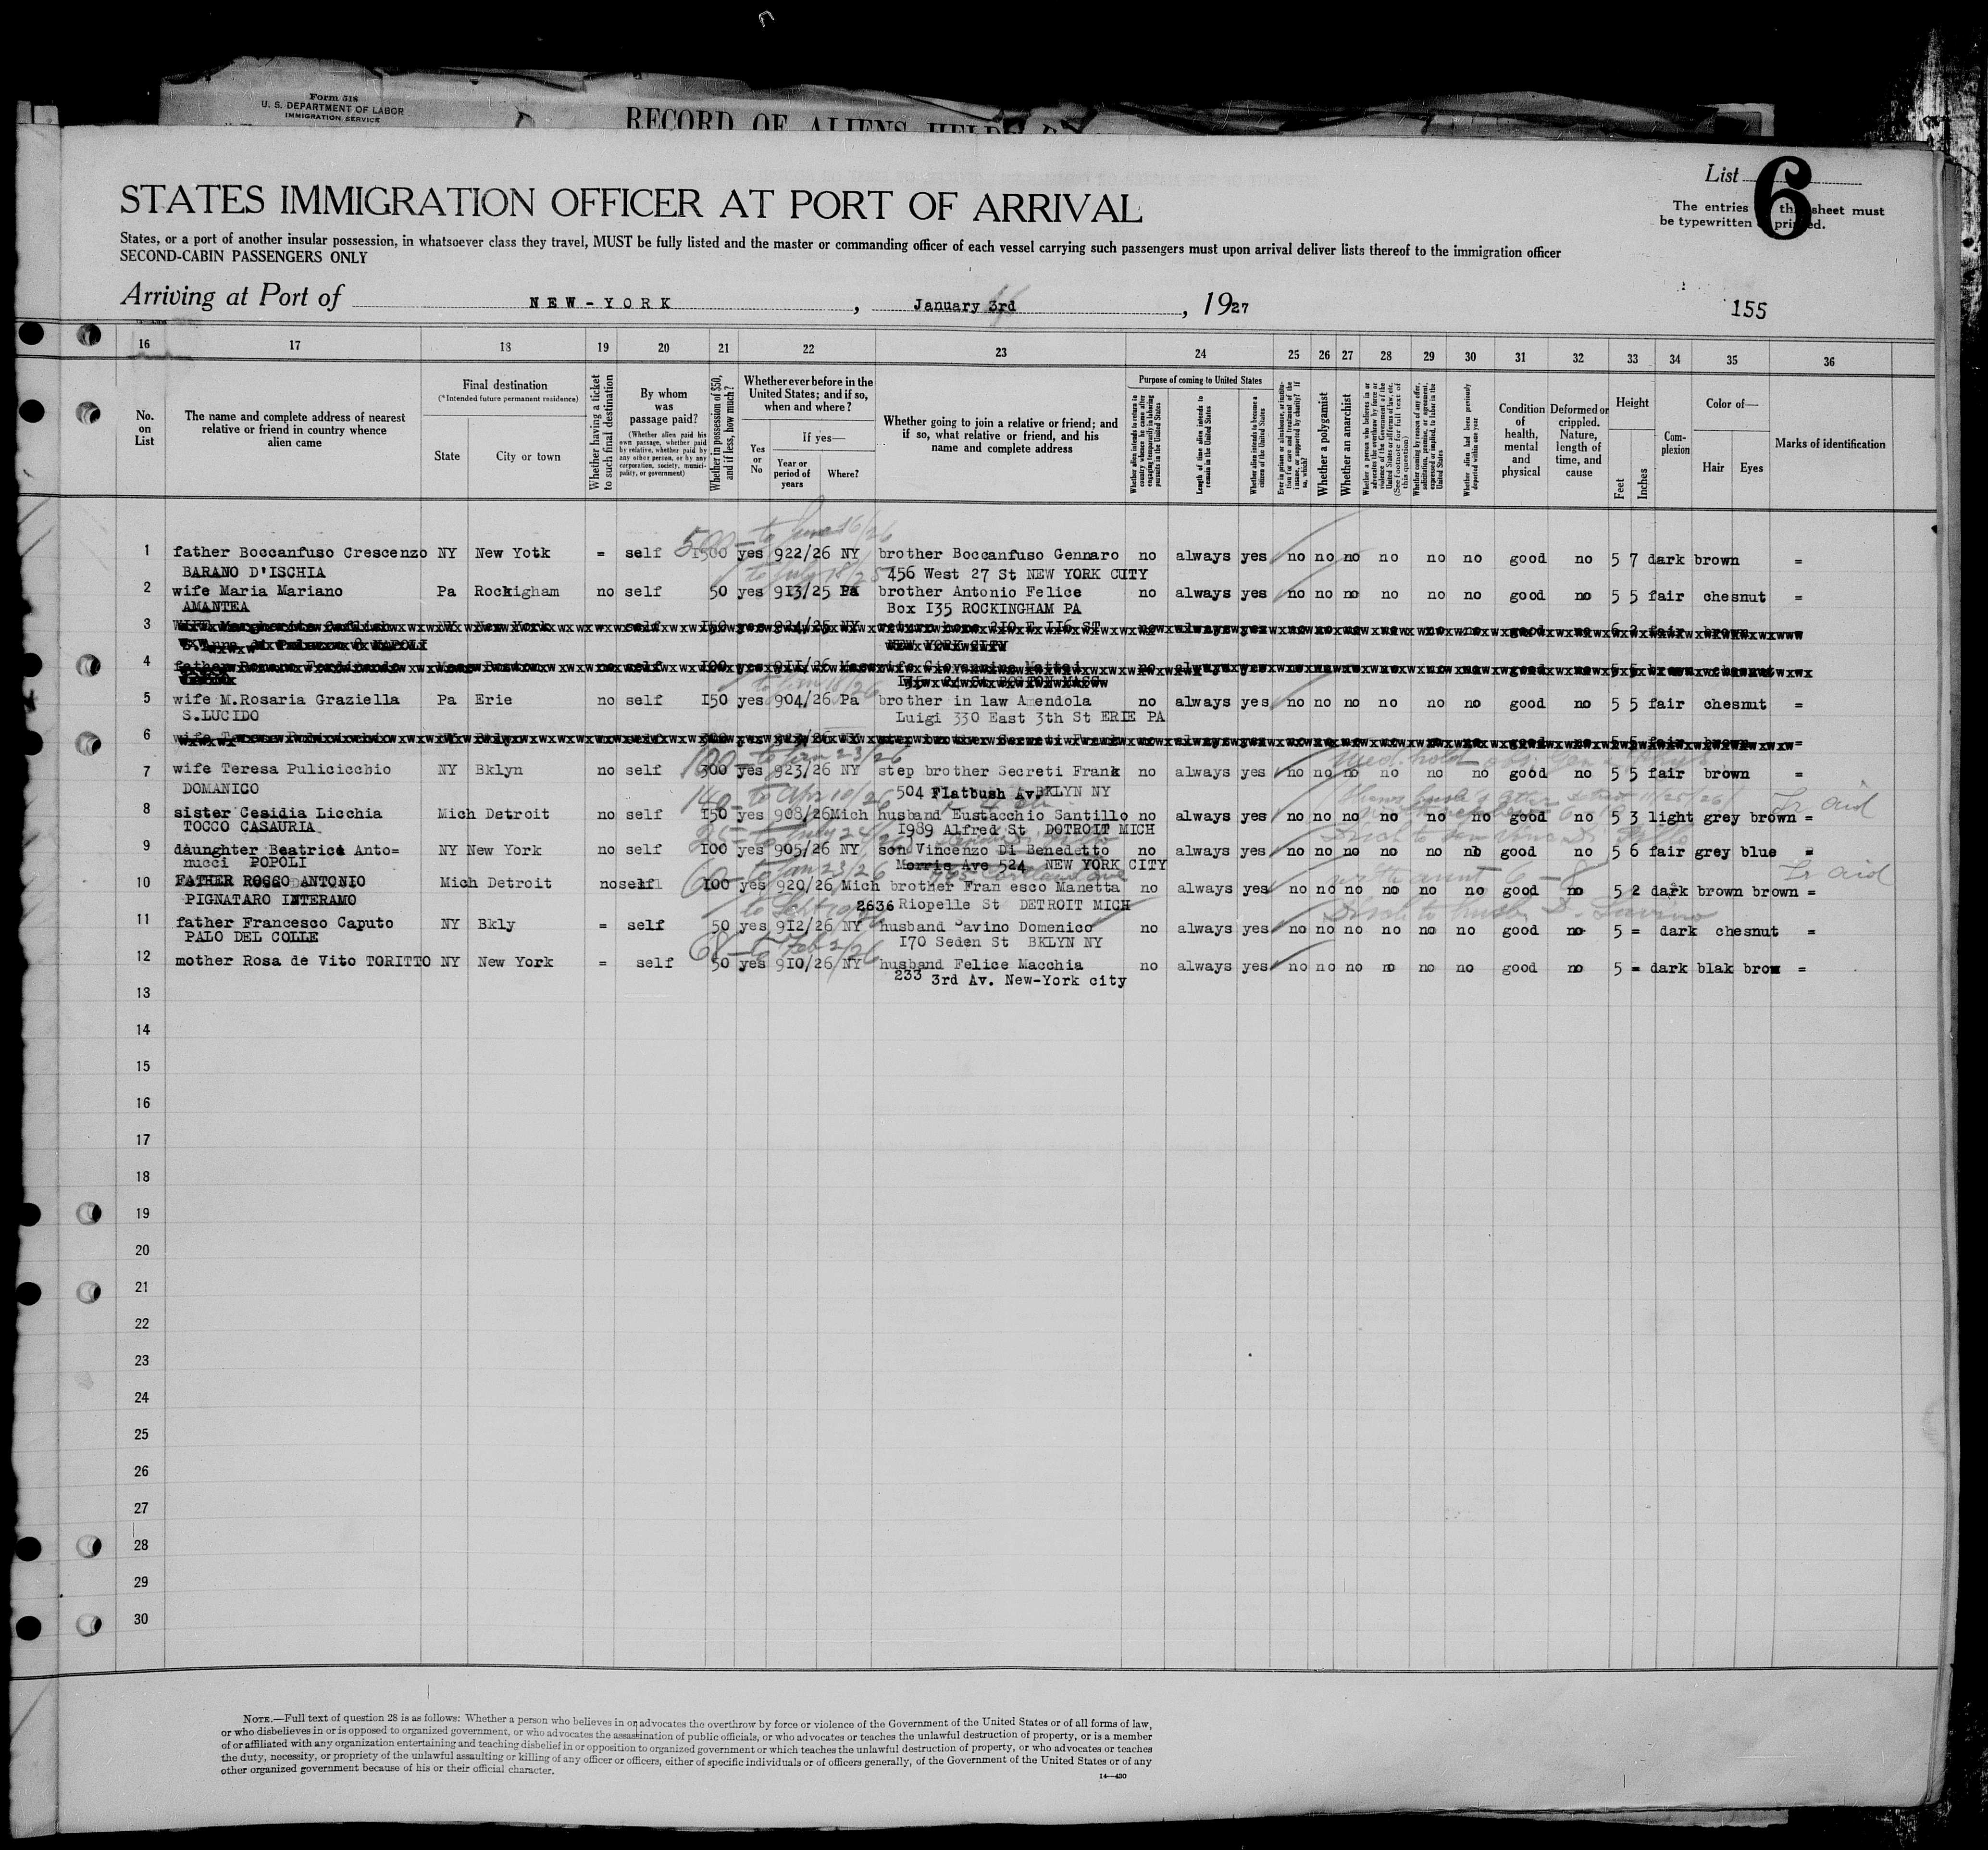 Form 518
U. S. DEPARTMENT OF LABOR
IMMIGRATION SERVICE
RECORD OF ALIENS HELD
List 6
The entries this sheet must
be typewritten printed.
STATES IMMIGRATION OFFICER AT PORT OF ARRIVAL
States, or a port of another insular possession, in whatsoever class they travel, MUST be fully listed and the master or commanding officer of each vessel carrying such passengers must upon arrival deliver lists thereof to the immigration officer
SECOND-CABIN PASSENGERS ONLY
Arriving at Port of NEW-YORK, January 3rd, 1927
155
16 17 18 19 20 21 22 23 24 25 26 27 28 29 30 31 32 33 34 35 36
No. on List
The name and complete address of nearest relative or friend in country whence alien came
Final destination
(*Intended future permanent residence)
State
City or town
Whether having a ticket to such final destination
By whom was passage paid?
(Whether alien paid his own passage, whether paid by relative, whether paid by any other person, or by any corporation, society, municipality, or government)
Whether in possession of $50, and if less, how much?
Whether ever before in the United States; and if so, when and where?
Yes or No
If yes—
Year or period of years
Where?
Whether going to join a relative or friend; and if so, what relative or friend, and his name and complete address
Purpose of coming to United States
Whether alien intends to return to country whence he came after engaging temporarily in laboring pursuits in the United States
Length of time alien intends to remain in the United States
Whether alien intends to become a citizen of the United States
Ever in prison or almshouse, or institution for care and treatment of the insane, or supported by charity? If so, which?
Whether a polygamist
Whether an anarchist
Whether a person who believes in or advocates the overthrow by force or violence of the Government of the United States or all forms of law, etc. (See footnote for full text of this question)
Whether coming by reason of any offer, solicitation, promise, or agreement, expressed or implied, to labor in the United States
Whether alien had been previously deported within one year
Condition of health, mental and physical
Deformed or crippled. Nature, length of time, and cause
Height
Feet
Inches
Complexion
Color of—
Hair
Eyes
Marks of identification
500 — to June 16/26
1 father Boccanfuso Crescenzo NY New Yotk = self 1500 yes 922/26 NY brother Boccanfuso Gennaro no always yes no no no no no no good no 5 7 dark brown =
BARANO D'ISCHIA to July 18/25 456 West 27 St NEW YORK CUTY
2 wife Maria Mariano Pa Rockigham no self 50 yes 913/25 Pa brother Antonio Felice no always yes no no no no no no good no 5 5 fair chesnut =
AMANTEA Box I35 ROCKINGHAM PA
3 New York self I50 yes 924/25 NY return home 210 E II6 ST no always yes no no no no no no good no 6 2 fair brown
NAPOLI NEW YORK CITY
4 father Romano Ferdinando Mass Boston no self I00 yes 9II/26 Mass wife Giovannina no always yes no no no no no no good no 5 5 brown chesnut
BOSTON MASS
to Jan 18/26
5 wife M.Rosaria Graziella Pa Erie no self I50 yes 904/26 Pa brother in law Amendola no always yes no no no no no no good no 5 5 fair chesnut =
S.LUCIDO Luigi 330 East 3th St ERIE PA
6 wife Teresa NY Bklyn self 300 yes 923/26 NY step brother Secreti Frank no always yes no no no no no no good no 5 5 fair brown =
100 — to Jan 23/26
7 wife Teresa Pulicicchio NY Bklyn no self 300 yes 923/26 NY step brother Secreti Frank no always yes no no no no no no good no 5 5 fair brown =
DOMANICO 504 Flatbush Av, BKLYN NY
140 — to Apr 10/26
8 sister Cesidia Licchia Mich Detroit no self I50 yes 908/26 Mich husband Eustacchio Santillo no always yes no no no no no no good no 5 3 light grey brown = aid
TOCCO CASAURIA I989 Alfred St DOTROIT MICH
25 — to July 24/26
9 daunghter Beatrice Anto= NY New York no self I00 yes 905/26 NY son Vincenzo Di Benedetto no always yes no no no no no no good no 5 6 fair grey blue =
nucci POPOLI Morris Ave 524 NEW YORK CITY
60 — to Jan 23/26
10 FATHER ROCCO ANTONIO Mich Detroit no self I00 yes 920/26 Mich brother Fran esco Manetta no always yes no no no no no no good no 5 2 dark brown brown = aid
PIGNATARO INTERAMO 2636 Riopelle St DETROIT MICH
11 father Francesco Caputo NY Bkly = self 50 yes 9I2/26 NY husband avino Domenico no always yes no no no no no no good no 5 = dark chesnut =
PALO DEL COLLE I70 Seden St BKLYN NY
68 — to Feb 2/26
12 mother Rosa de Vito TORITTO NY New York = self 50 yes 9I0/26 NY husband Felice Macchia no always yes no no no no no no good no 5 = dark blak brow =
233 3rd Av. New-York city
13
14
15
16
17
18
19
20
21
22
23
24
25
26
27
28
29
30
NOTE.—Full text of question 28 is as follows: Whether a person who believes in or advocates the overthrow by force or violence of the Government of the United States or of all forms of law,
or who disbelieves in or is opposed to organized government, or who advocates the assassination of public officials, or who advocates or teaches the unlawful destruction of property, or is a member
of or affiliated with any organization entertaining and teaching disbelief in or opposition to organized government or which teaches the unlawful destruction of property, or who advocates or teaches
the duty, necessity, or propriety of the unlawful assaulting or killing of any officer or officers, either of specific individuals or of officers generally, of the Government of the United States or of any
other organized government because of his or their official character.
14—430